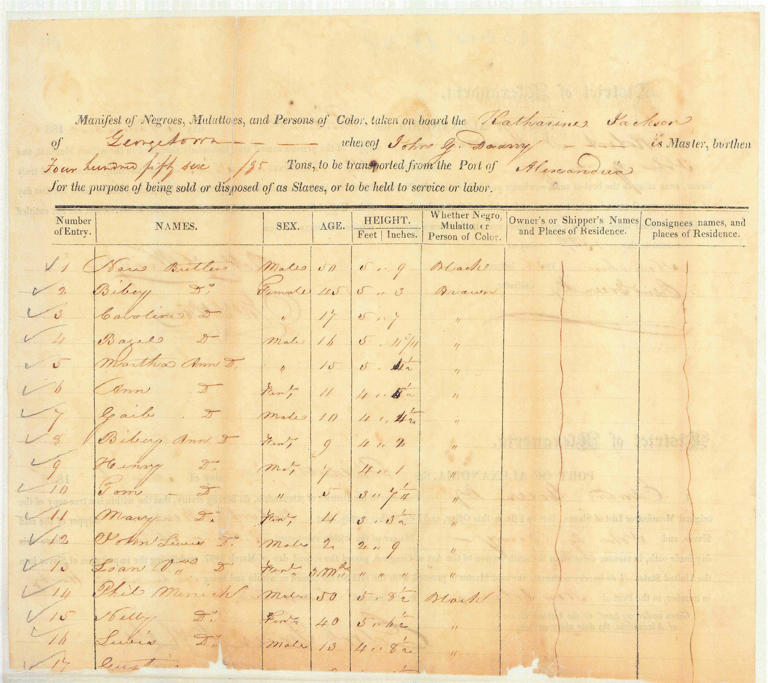 Manifest of Negroes, Mulattoes, and Persons of Color, taken on board the Katharine Jackson
of Georgetown whereof John G. is Master, burthen
Four hundred fifty six /95 Tons, to be transported from the Port of Alexandria
for the purpose of being sold or disposed of as Slaves, or to be held to service or labor.
Number of Entry. NAMES. SEX. AGE. HEIGHT. Feet Inches. Whether Negro, Mulatto, or Person of Color. Owner's or Shipper's Names and Places of Residence. Consignees names, and places of Residence.
1 Butler Male 50 5 " 9 Black
2 Bibey Do Female 45 5 " 3 Brown
3 Caroline D " 17 5 " 7 "
4 Bazel D Male 16 5 "
5 Martha Ann D. " 15 5 " "
6 Ann D Fem. 11 4 " 5½ "
7 D Male 10 4 " 4½ "
8 Bibey Ann D Fem. 9 4 " 2 "
9 Henry D. Mal, 7 4 " 1 "
10 Tom D " 5 3 " "
11 Mary Do Fem, 4 3 " 3½ "
12 John Lewis Do Male 2 2 " 9 "
13 D Fem. " " " "
14 Phil Male 50 5 " 8½ Black
15 Nelly Do Fem. 40 5 " "
16 Lewis Do Male 13 4 " 8½ "
17